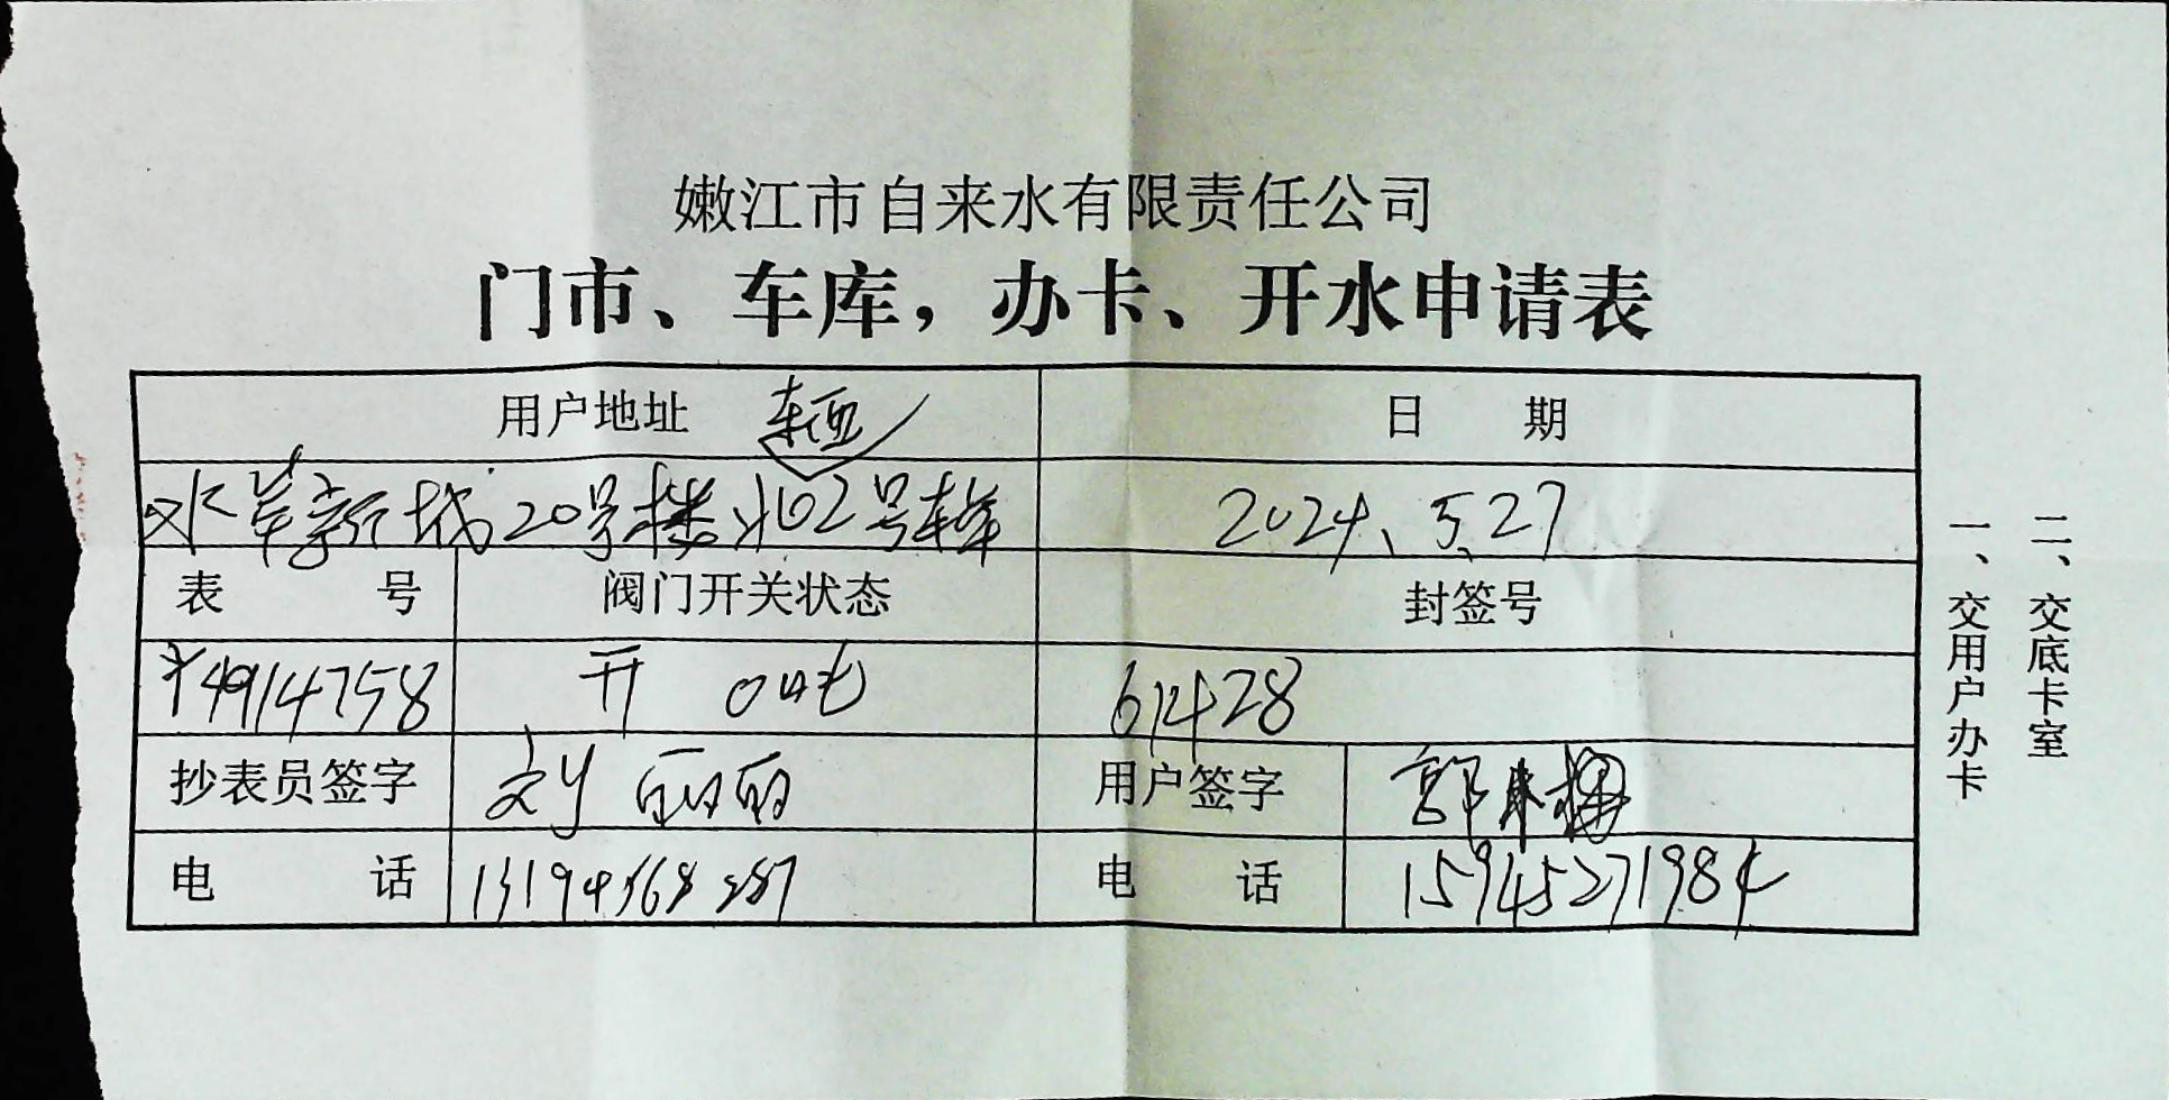 嫩江市自来水有限责任公司
门市、车库，办卡、开水申请表
用户地址
日 期
水岸新城20号楼 102号车库
2024、5、27
表 号 阀门开关状态 封签号
4914758 开 61428
抄表员签字 刘丽丽 用户签字 郭
电 话 电 话 15945271984
一、交用户办卡
二、交底卡室